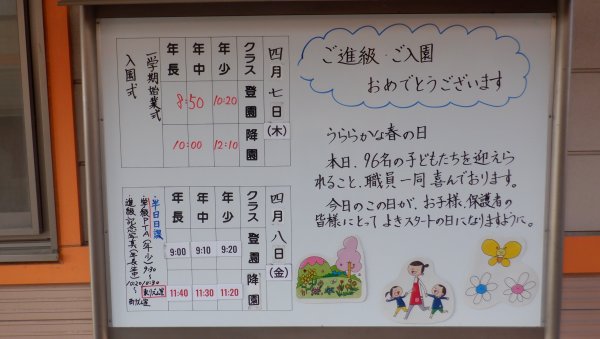 ご進級・ご入園
おめでとうございます
うららかな春の日
本日、96名の子どもたちを迎えら
れること、職員一同喜んでおります。
今日のこの日が、お子様、保護者の
皆様にとってよきスタートの日になりますように。
四月七日(木)
クラス 登園 降園
年少 10:20 12:10
年中 8:50 10:00
年長
一学期始業式
入園式
四月八日(金)
クラス 登園 降園
年少 9:20 11:20
年中 9:10 11:30
年長 9:00 11:40
・半日日課
・学級PTA(年少) 9:30〜10:30
・進級記念写真(年長・中) 10:20〜